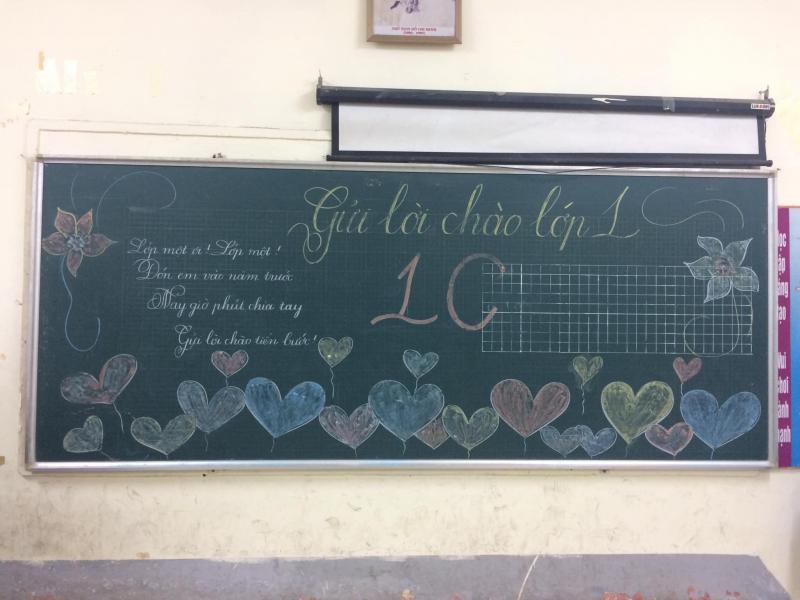 Gửi lời chào lớp 1
Lớp một ơi! Lớp một!
Đón em vào năm trước
Nay giờ phút chia tay
Gửi lời chào tiến bước!
1C
Vui